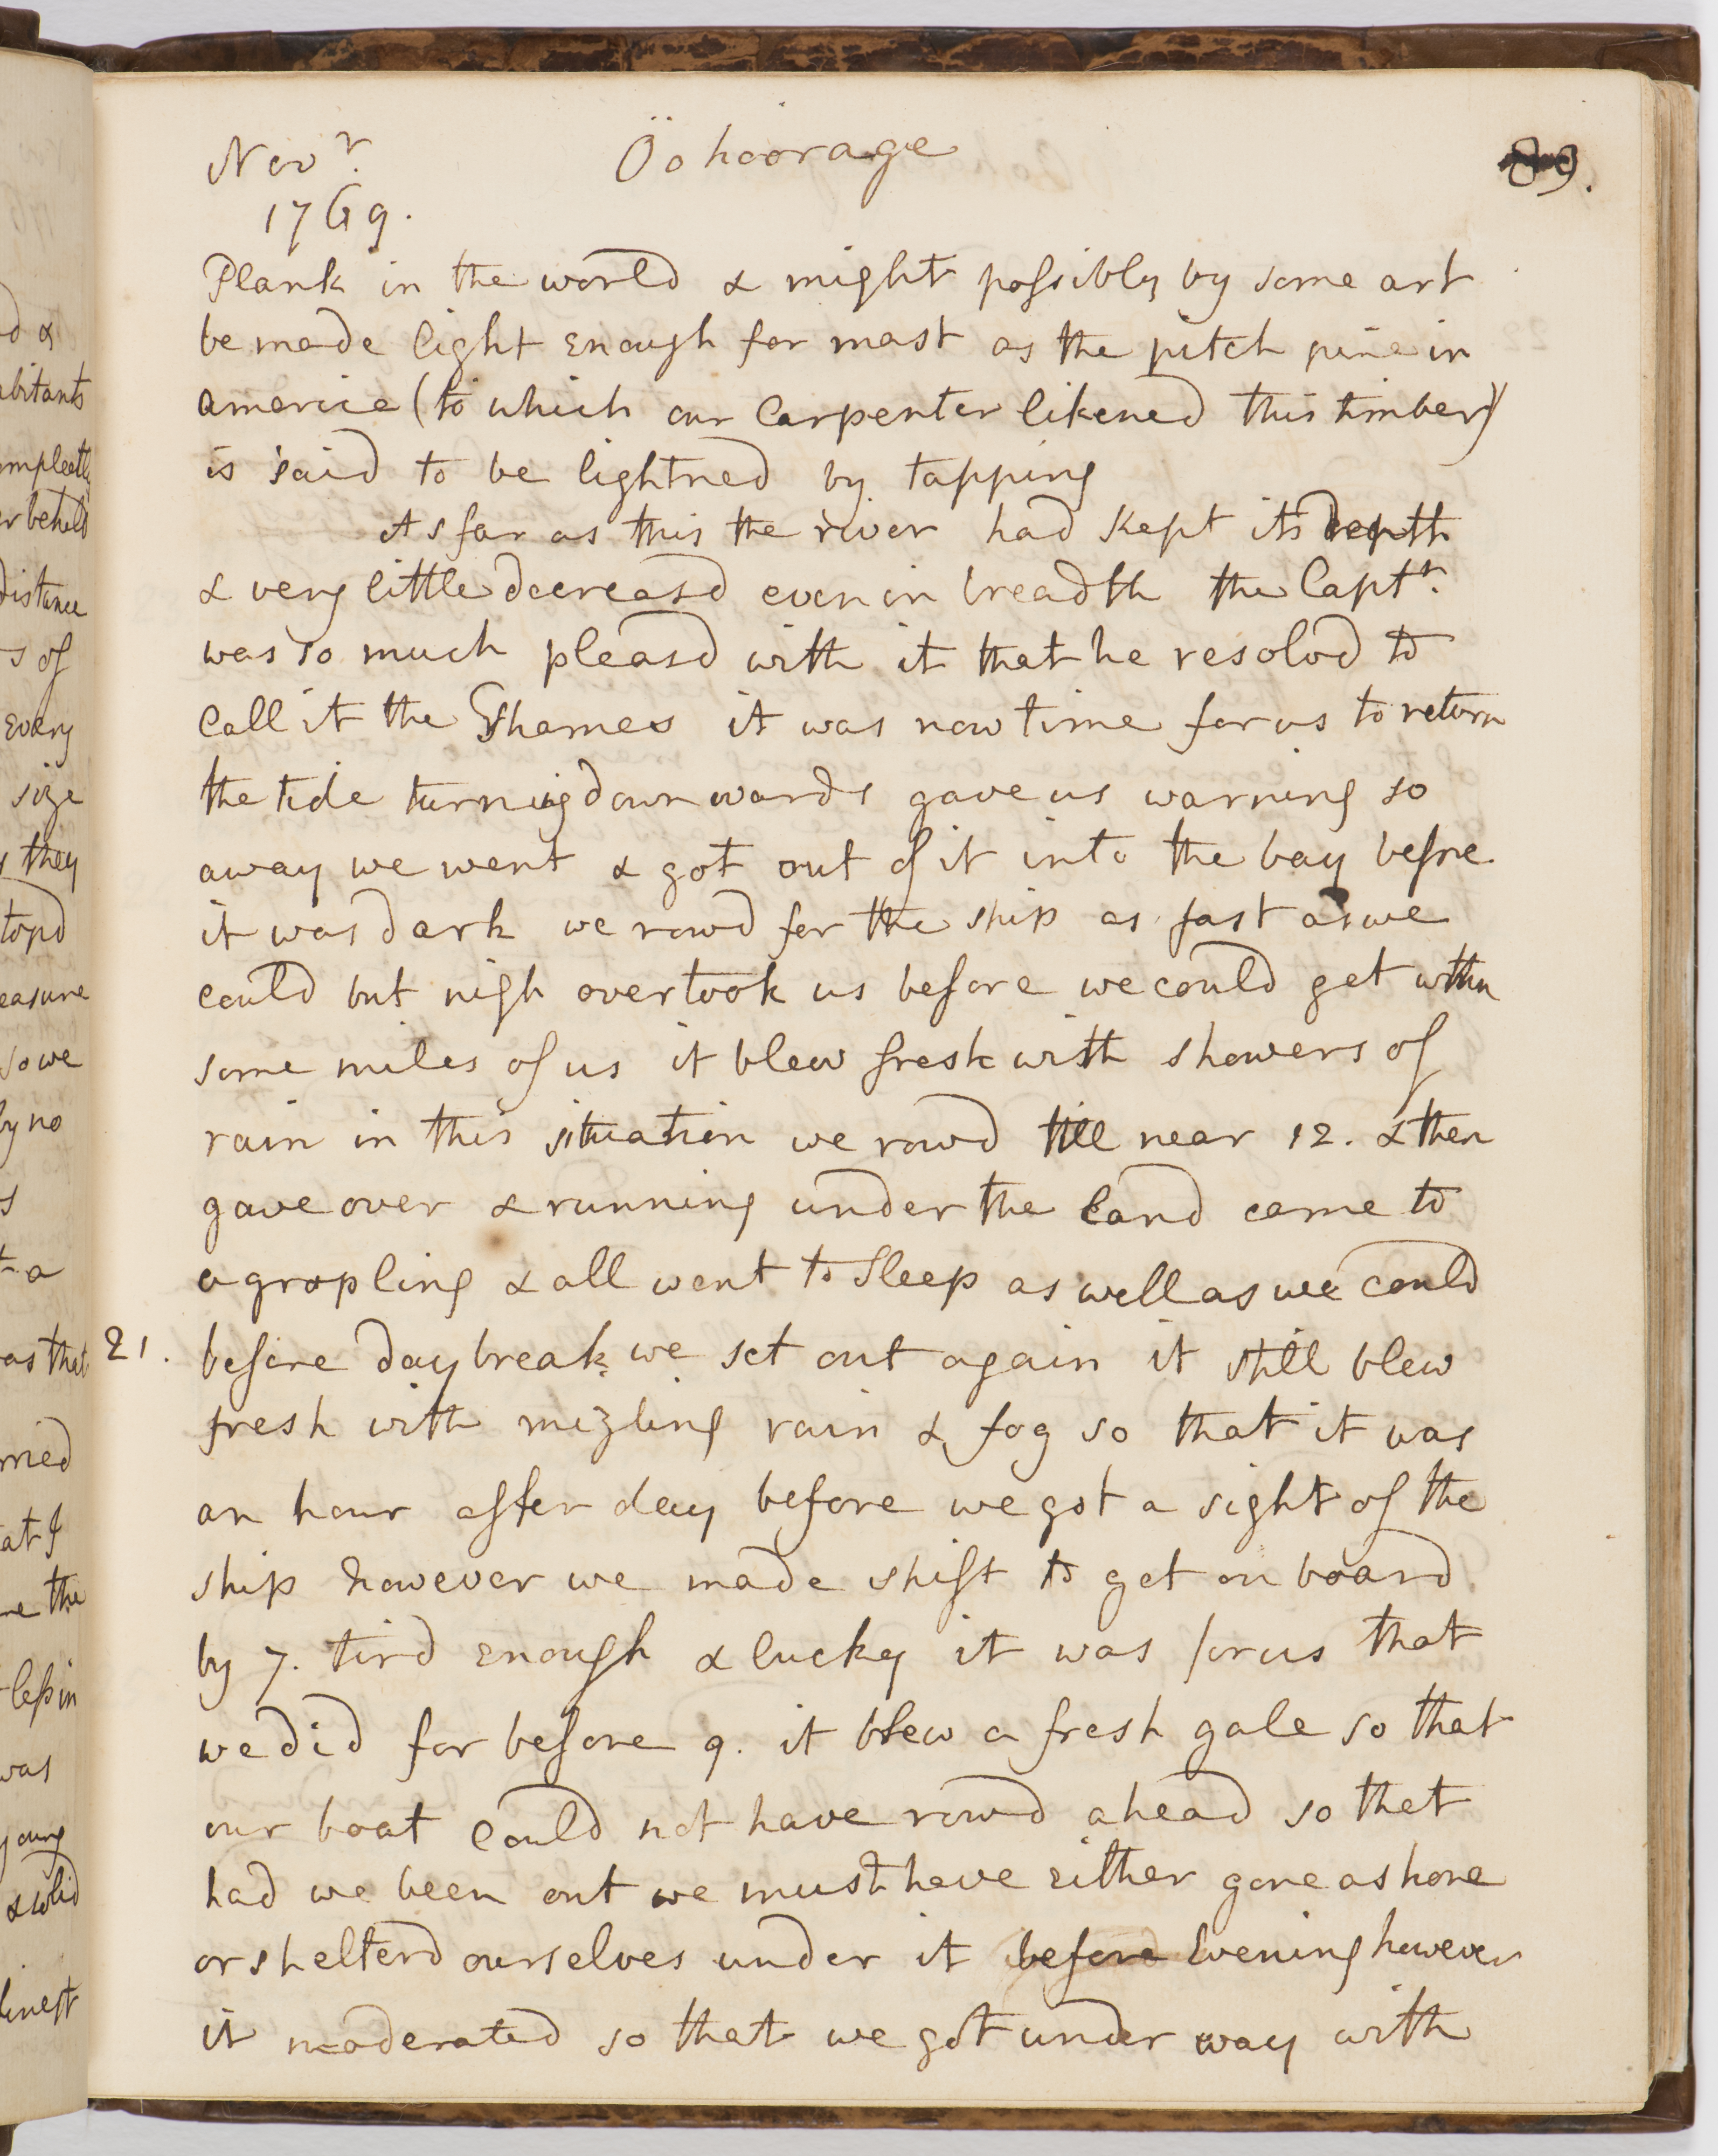 Novr.
1769.
Öohoorage
89.
Plank in the world & might possibly by some art
be made light Enough for mast as the pitch pine in
america (to which our Carpenter likened this timber)
is said to be lightned by tapping
As far as this the river had kept its depth
& very little decreasd even in breadth the Captn.
was so much pleasd with it that he resolvd to
Call it the Thames it was now time for us to return
the tide turning downwards gave us warning so
away we went & got out of it into the bay before
it was dark we rowd for the ship as fast as we
could but nigh overtook us before we could get within
some miles of us it blew fresk with showers of
rain in this situation we rowd till near 12. & then
gave over & running under the land came to
a grapling & all went to Sleep as well as we could
21. before daybreak we set out again it still blew
fresh with mizling rain & fog so that it was
an hour after day before we got a sight of the
ship however we made shift to get on board
by 7. tird Enough & lucky it was for us that
we did for before 9. it blew a fresh gale so that
our boat could not have rowd ahead so that
had we been out we must have either gone ashore
or shelterd ourselves under it before Evening however
it moderated so that we got under way with
d &
abitants
ompleatly
er beheld
distance
s of
Every
size
they
topd
easure
so we
by no
s
t a
as that
rried
at I
re the
less in
was
young
& solid
finest